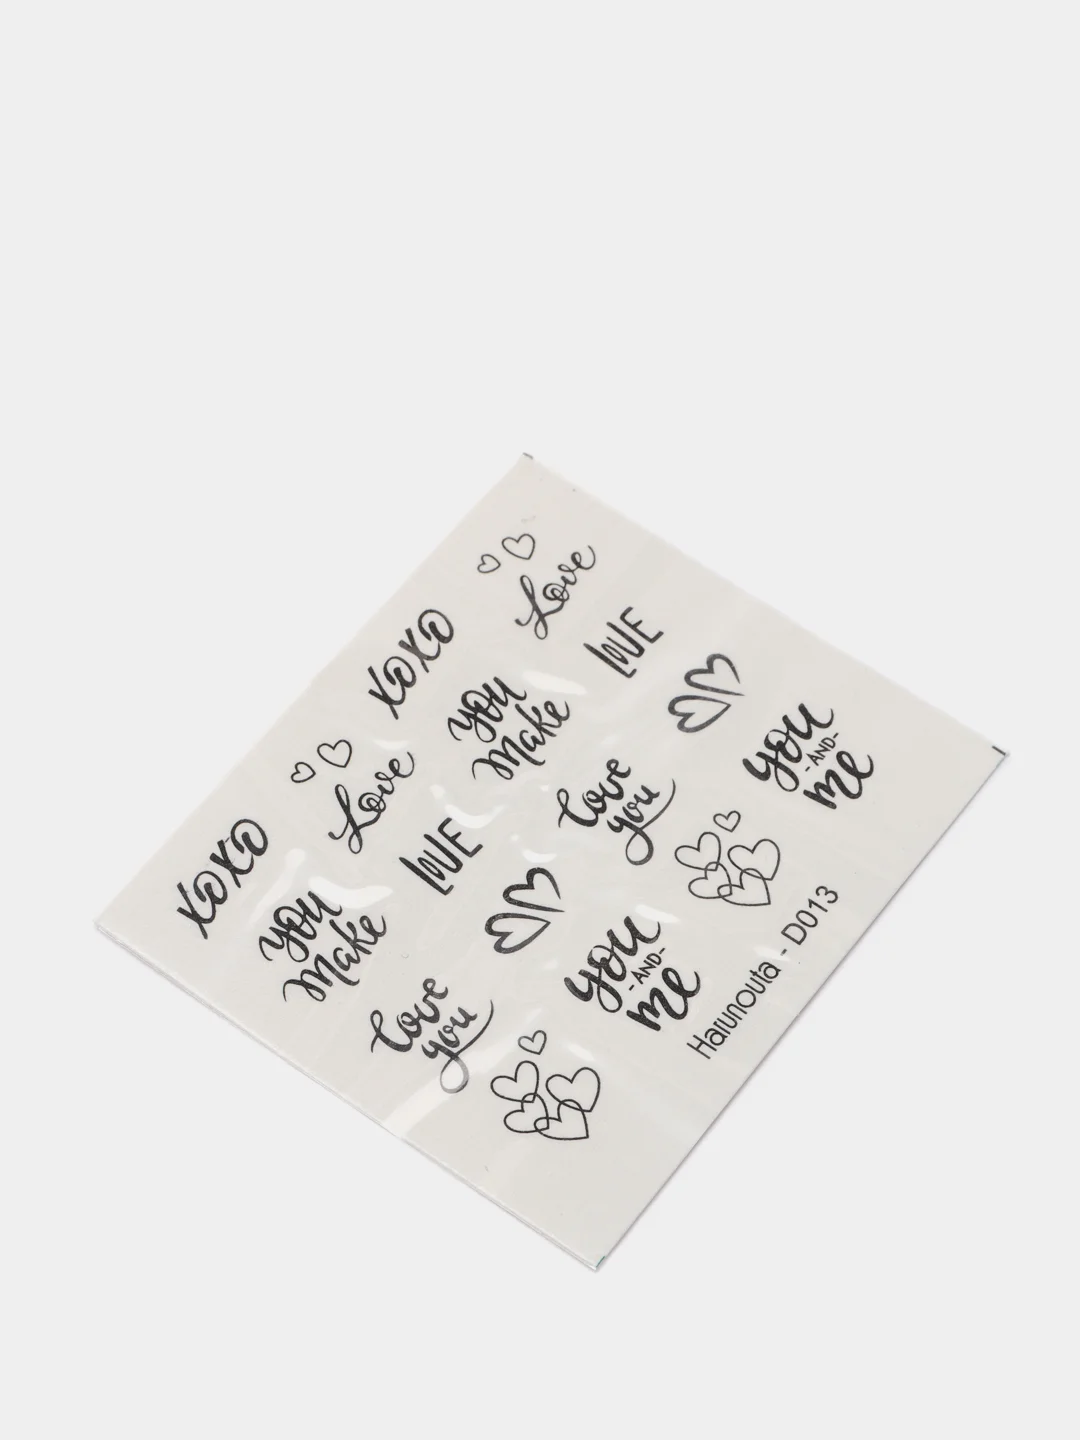 XOXO
Love
XOXO
Love
you
Make
LOVE
you
Make
LOVE
Love
you
Love
you
you
-AND-
me
you
-AND-
me
Harunouta - D013